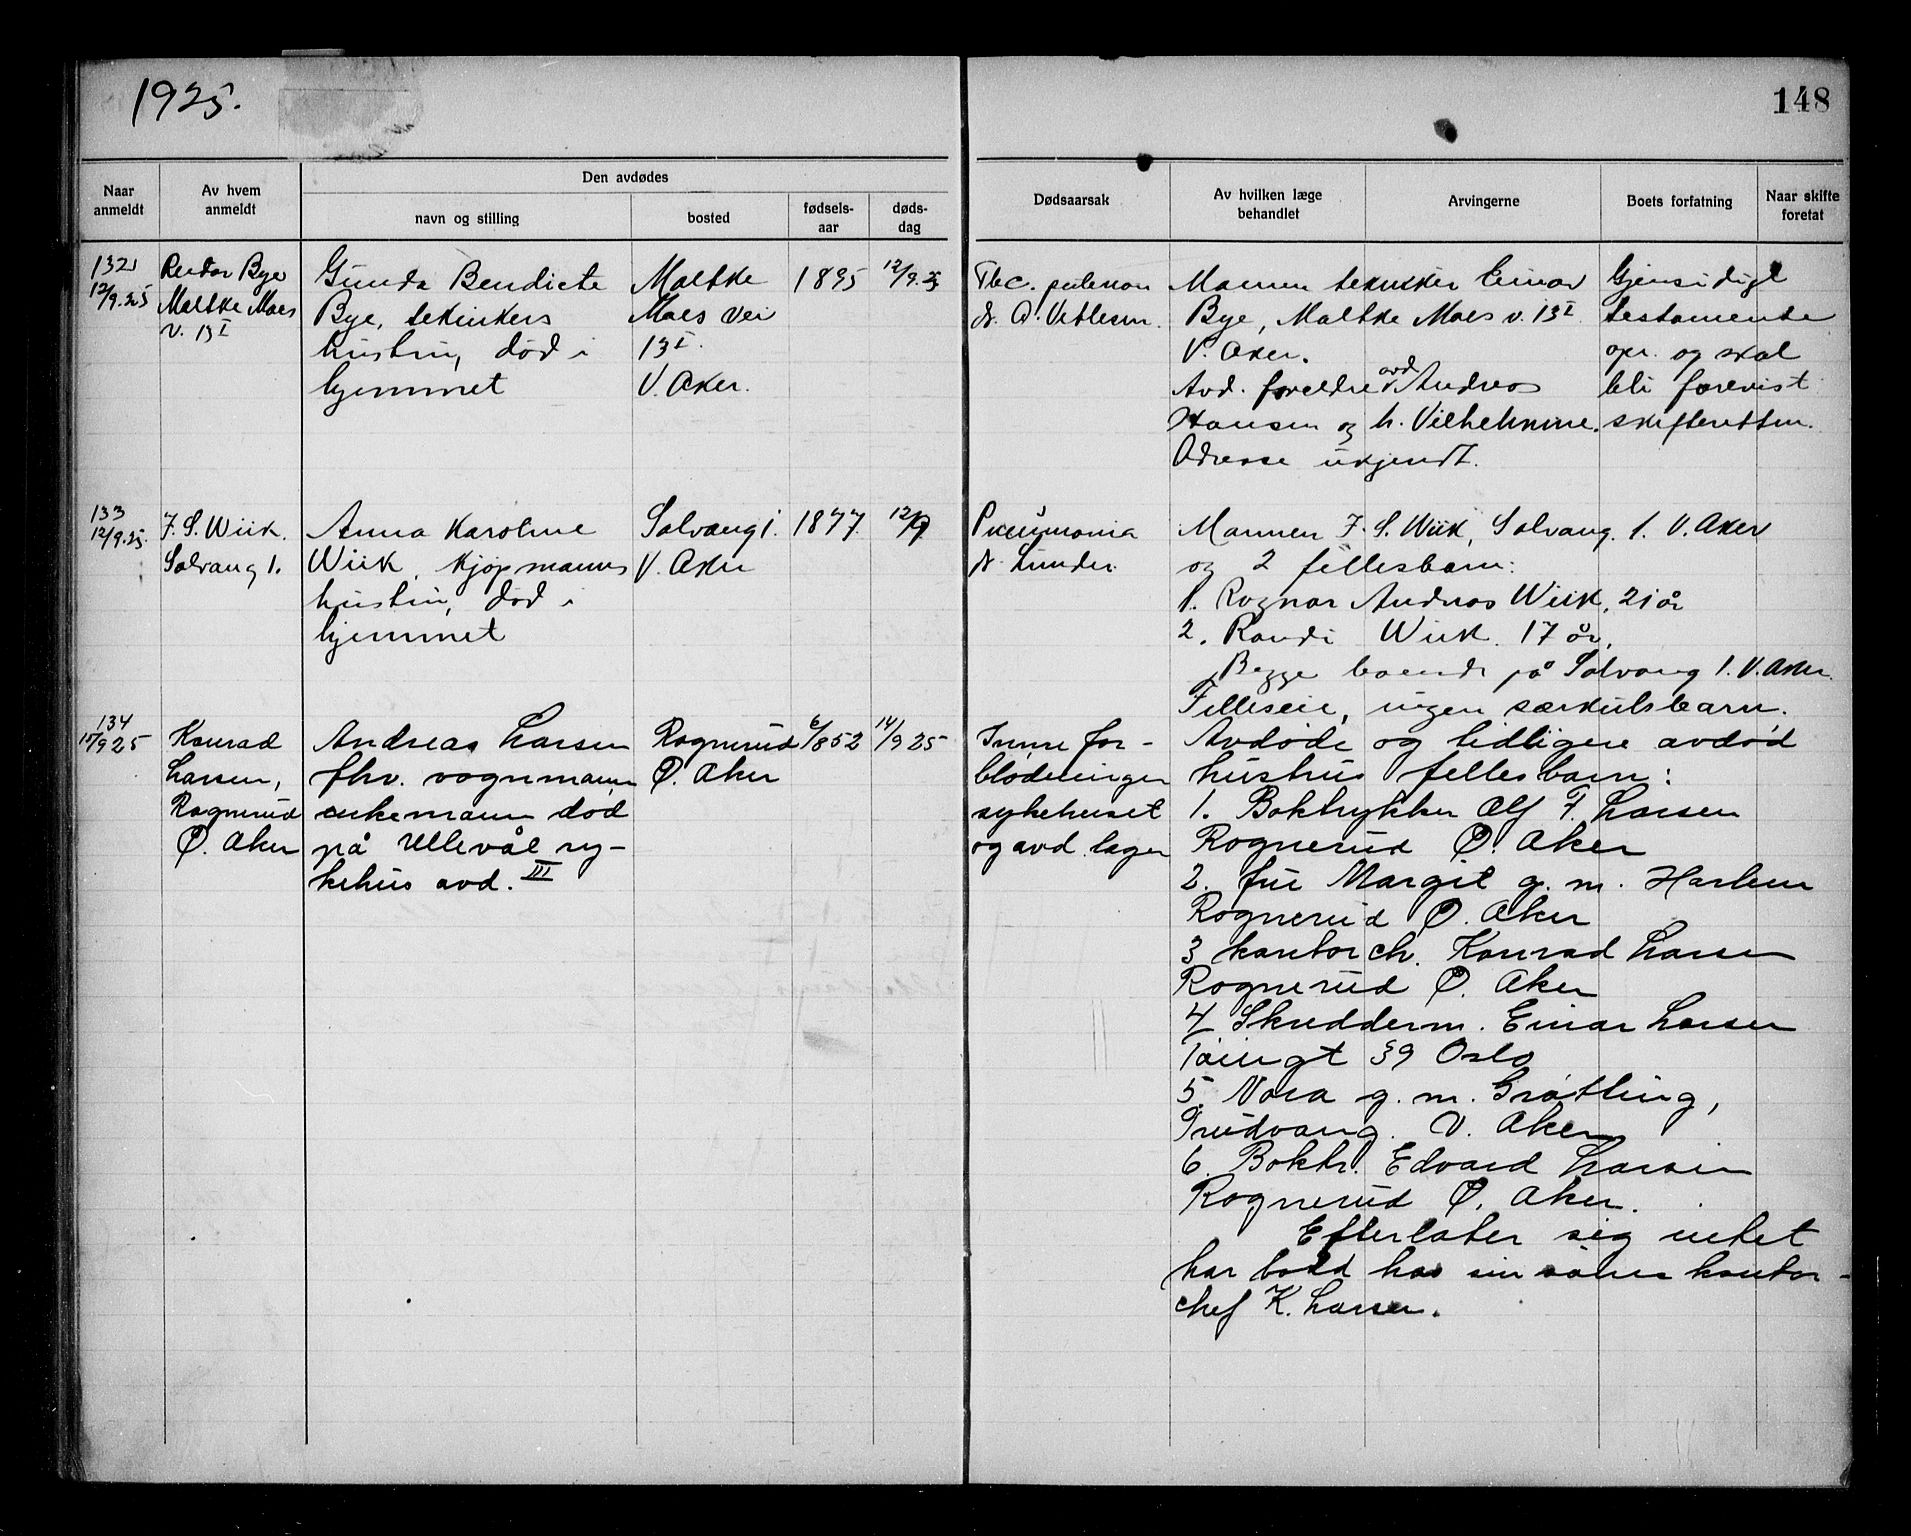 1925.
148
Naar anmeldt
Av hvem anmeldt
Den avdødes
navn og stilling
bosted
fødselsaar
dødsdag
Dødsaarsak
Av hvilken læge behandlet
Arvingerne
Boets forfatning
Naar skifte foretat
132
12/9.25
Reidar Bye
Moltke Moes
v. 13 I
Gunda Bendicte
Bye, teknikers
hustru, død i
hjemmet
Moltke
Moes vei
13 I.
V. Aker.
1895
12/9.25
Tbc. pulmon
dr. A. Vetlesen.
Mannen tekniker Einar
Bye, Moltke Moes v. 13 I
V. Aker.
Avd. foreldre avd. Andreas
Hansen og h. Vilhelmine.
Adresse ukjendt.
Gjensidigt
testamente
opr. og skal
bli forevist
skifteretten.
133
12/9.25.
F. S. Wiik.
Solvang 1.
Anna Karoline
Wiik, kjøpmanns
hustru, død i
hjemmet
Solvang 1.
V. Aker
1877.
12/9
Pneumonia
dr. Lunder.
Mannen F. S. Wiik, Solvang. 1. V. Aker
og 2 fellesbarn:
1. Ragnar Andreas Wiik, 21 år
2. Randi Wiik. 17 år,
Begge boende på Solvang 1. V. Aker.
Felleseie, ingen særkulsbarn.
134
15/9 25
Konrad
Larsen,
Rognerud
Ø. Aker
Andreas Larsen
fhv. vognmann,
enkemann død
på Ullevål sy-
kehus avd. III
Rognerud
Ø. Aker
6/8 52
14/9 25
Inne for-
blødninger
sykehuset
og avd. læger
Avdøde og tidligere avdød
hustrus fellesbarn:
1. Boktrykker Alf F. Larsen
Rognerud Ø. Aker
2. fru Margit g. m. Harlem
Rognerud Ø. Aker
3 kontorch. Konrad Larsen
Rognerud Ø. Aker
4 Skredderm. Einar Larsen
Tøiengt 39 Oslo
5. Nora g. m. Grøtling,
Trudvang. V. Aker
6. Boktr. Edvard Larsen
Rognerud Ø. Aker.
Efterlater sig intet
har bodd hos sin sønn kontor-
chef K. Larsen.